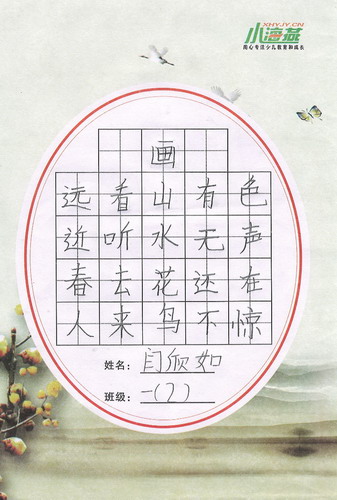 XHYJY.CN
小海燕
用心专注少儿教育和成长
画
远看山有色
近听水无声
春去花还在
人来鸟不惊
姓名：闫欣如
班级：一(7)